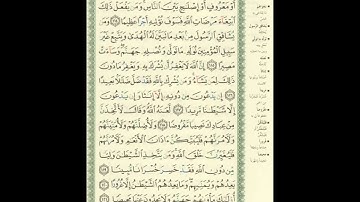 أَوْ مَعْرُوفٍ أَوْ إِصْلَٰحٍۭ بَيْنَ ٱلنَّاسِ وَمَن يَفْعَلْ ذَٰلِكَ
ٱبْتِغَآءَ مَرْضَاتِ ٱللَّهِ فَسَوْفَ نُؤْتِيهِ أَجْرًا عَظِيمًا ١١٤ وَمَن
يُشَاقِقِ ٱلرَّسُولَ مِنۢ بَعْدِ مَا تَبَيَّنَ لَهُ ٱلْهُدَىٰ وَيَتَّبِعْ غَيْرَ
سَبِيلِ ٱلْمُؤْمِنِينَ نُوَلِّهِۦ مَا تَوَلَّىٰ وَنُصْلِهِۦ جَهَنَّمَ وَسَآءَتْ
مَصِيرًا ١١٥ إِنَّ ٱللَّهَ لَا يَغْفِرُ أَن يُشْرَكَ بِهِۦ وَيَغْفِرُ مَا دُونَ
ذَٰلِكَ لِمَن يَشَآءُ وَمَن يُشْرِكْ بِٱللَّهِ فَقَدْ ضَلَّ ضَلَٰلًۢا بَعِيدًا
١١٦ إِن يَدْعُونَ مِن دُونِهِۦٓ إِلَّآ إِنَٰثًا وَإِن يَدْعُونَ
إِلَّا شَيْطَٰنًا مَّرِيدًا ١١٧ لَّعَنَهُ ٱللَّهُ وَقَالَ لَأَتَّخِذَنَّ
مِنْ عِبَادِكَ نَصِيبًا مَّفْرُوضًا ١١٨ وَلَأُضِلَّنَّهُمْ وَلَأُمَنِّيَنَّهُمْ
وَلَءَامُرَنَّهُمْ فَلَيُبَتِّكُنَّ ءَاذَانَ ٱلْأَنْعَٰمِ وَلَءَامُرَنَّهُمْ
فَلَيُغَيِّرُنَّ خَلْقَ ٱللَّهِ وَمَن يَتَّخِذِ ٱلشَّيْطَٰنَ وَلِيًّا
مِّن دُونِ ٱللَّهِ فَقَدْ خَسِرَ خُسْرَانًا مُّبِينًا ١١٩
يَعِدُهُمْ وَيُمَنِّيهِمْ وَمَا يَعِدُهُمُ ٱلشَّيْطَٰنُ إِلَّا غُرُورًا ١٢٠
أُو۟لَٰٓئِكَ مَأْوَىٰهُمْ جَهَنَّمُ وَلَا يَجِدُونَ عَنْهَا مَحِيصًا ١٢١